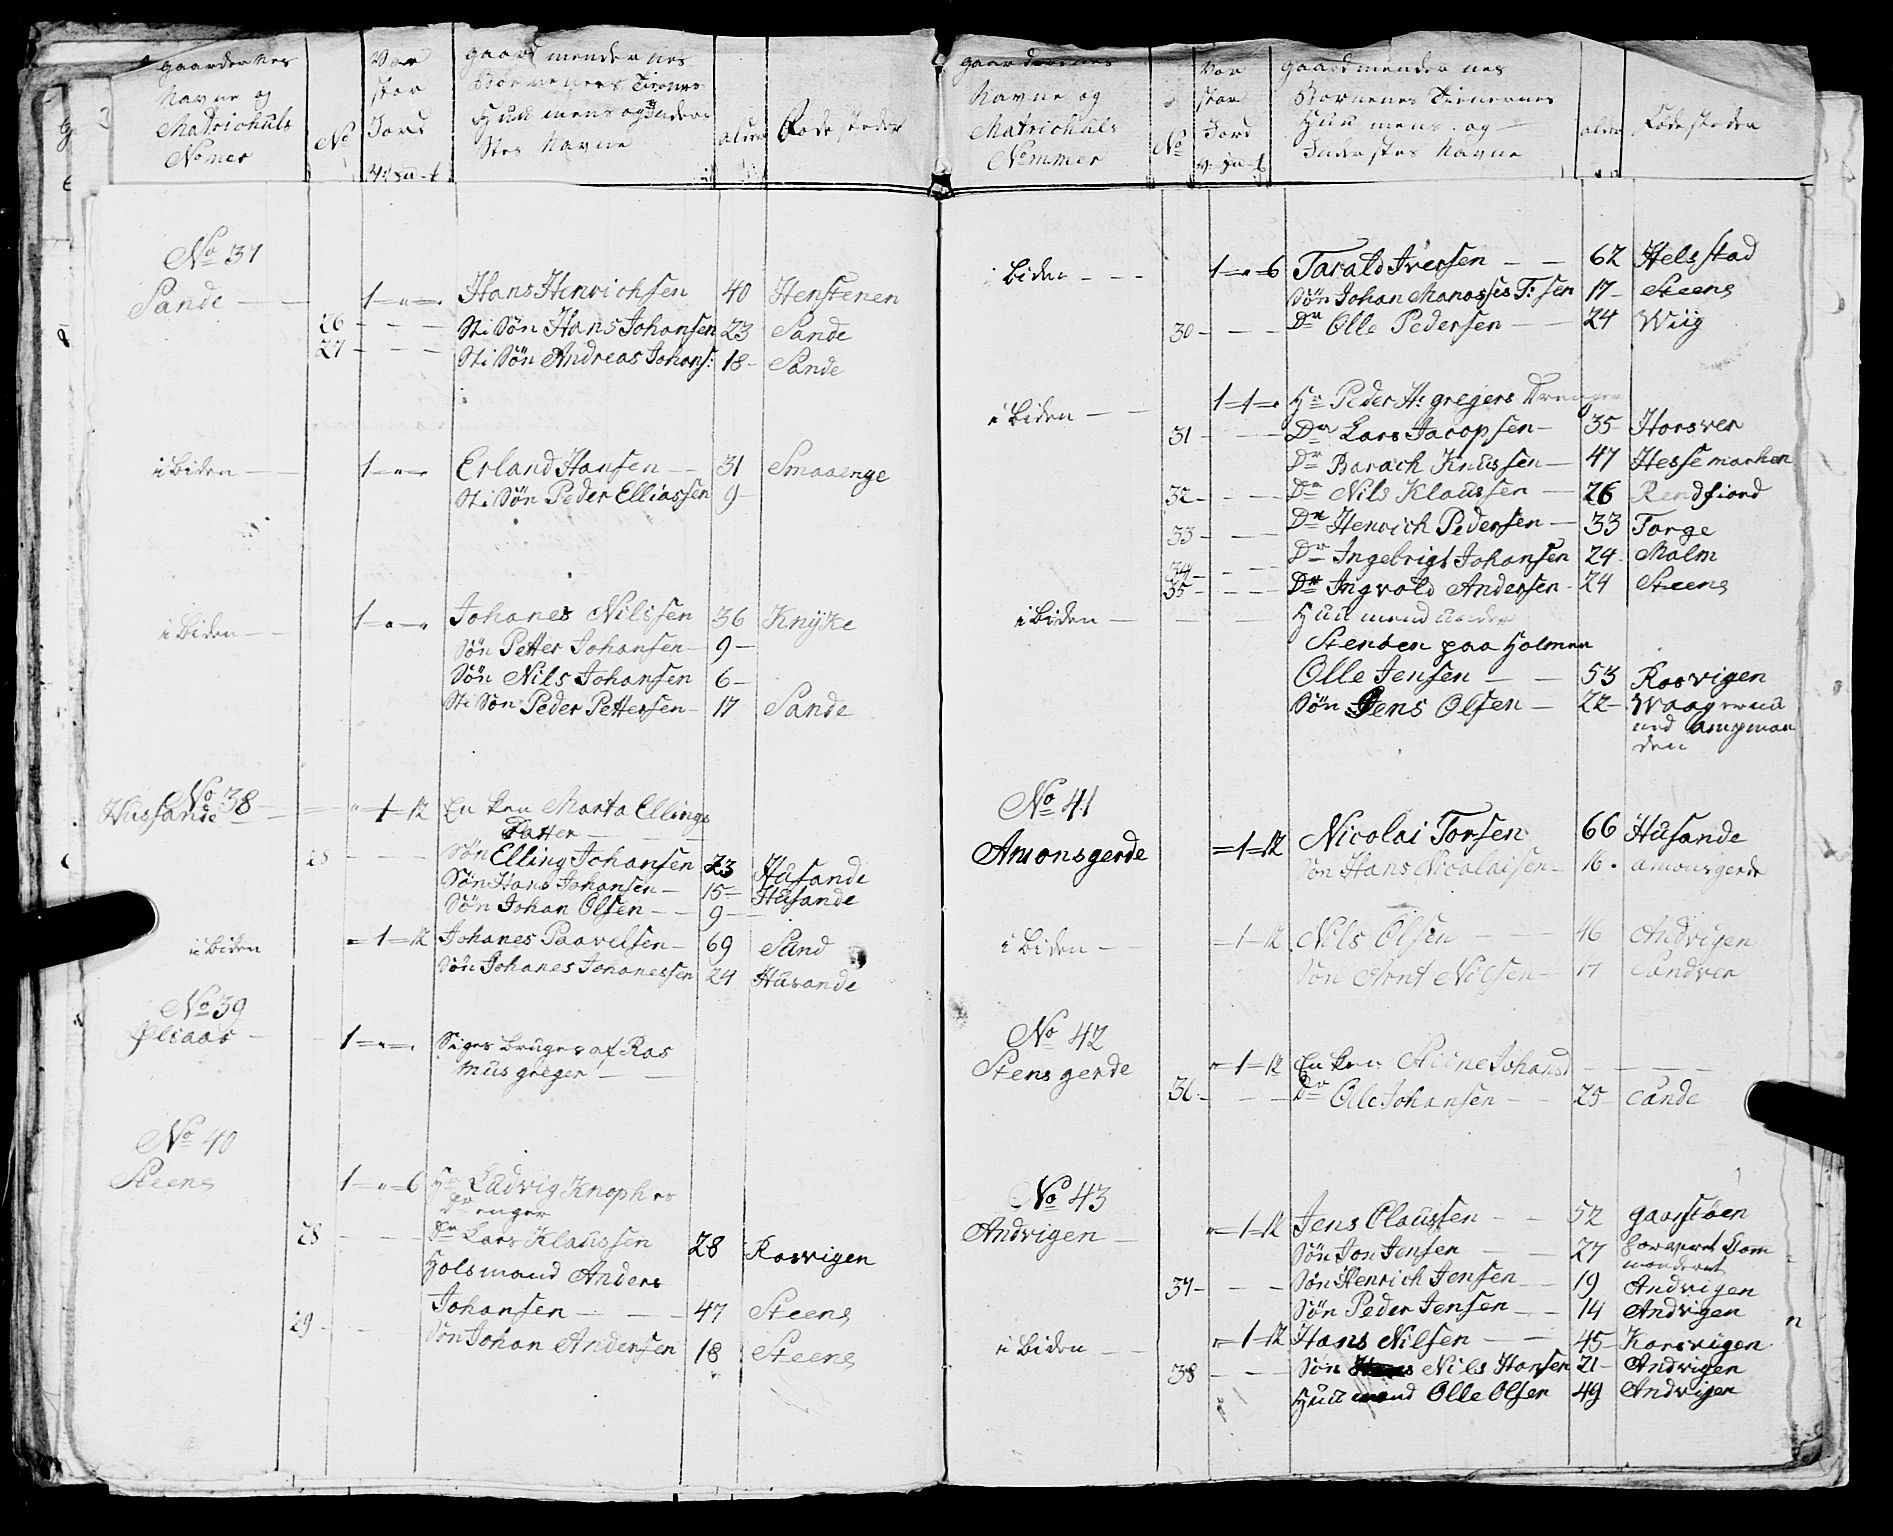 gaardernes
Navne og
Matrichuls
Nomer
No
Vor
stor
Jord
gaard mendernes
Børneners Tieners
Huu mens og Inders
stes Navne
alder
Føde steder
No 37
Sande
1 = " =
Hans Henrichsen 40 Henstenen
26 - - - Sti Søn Hans Johansen 23 Sande
27 - - - Sti Søn Andreas Johans: 18 - Sande
i biden - - 1 = " = Erland Hansen - - 31 Smaaenge
Sti Søn Peder Elliassen 9 -
i biden - - 1 = " = Johanes Nilssen 36 Knÿke
Søn Petter Johansen - 9 -
Søn Nils Johansen 6 -
Sti Søn Peder Pettersen - 17 Sande
No 38
Hussande - - " = 1 = 12 En ken Marta Ellings
Datter - -
28 - - - Søn Elling Johansen 23 Husande
Søn Hans Johansen - 15 - Husande
Søn Johan Olsen - - 9 -
i biden = 1 = 12 Johanes Paavelsen - 69 Sund
Søn Johanes Johanessen 24 Husande
No 39
1 = " = Siges bruges af Ras
mus greger - -
No 40
Steens
1 = " = 6 Hr Ludvig Knophes
drenger
28 - - - Dr Lars Klaussen 28 Rosvigen
Holsmand Anders
Johansen - - - 47 Steens
29 - - Søn Johan Andersen 18 Steens
gaardernes
Navne og
Matrichuls
Nommer
No
Vor
stor
Jord
gaardmendernes
Børnenes Tienernes
Huu mens og
Inderstes Navne
alder
Føde steder
i biden - - - 1 = " = 6 Tarald Iversen - - 62 Helsstad
Søn Johan Manasses T: sen 17 - Steens
30 - - - Dr Olle Pedersen - - 24 Wiig
i biden - - 1 = 1 = " Hr Peder H: gregers Drenger
31 - - - Dr Lars Jacopsen - 35 - Horsver
Dr Barach Knussen - 47 Hessemarken
32 - - - Dr Nils Klaussen - 26 Rendfiord
33 - - - Dr Henrich Pedersen - 33 Torge
34 - - - Dr Ingebrigt Johansen 24 - Malm
35 - - - Dr Ingvald Andersen - 24 Steens
i biden - - - - Huu mend under
Stensen paa Holmen
Olle Jensen - - 53 Rosvigen
Søn Jens Olsen - 22 -
No 41
Amonsgerde = 1 = 12 Nicolai Torsen 66 Husande
Søn Hans Nicolaisen - 16 - amonsgerde
i biden - = 1 = 12 Nils Olsen - - - 46 Andvigen
Søn Arnt Nilsen - 17 Sandver
No 42
Stens gerde " = 1 = 12 En ken Stine Johans - - - -
36 - - - Dr Ole Johansen - - 25 - Sande
No 43
Andvigen - " = 1 = 12 Jens Claussen - - 52 gaarstøen
Søn Jon Jensen - - 27
37 - - - Søn Henrich Jensen - - 19 Andvigen
Søn Peder Jensen - - 14 Andvigen
i biden - - " = 1 = 12 Hans Nilsen - - 45 - Korsvigen
38 - - - Søn Nils Hansen 21 - Andvigen
Huumand Olle Olsen 49 Andvigen